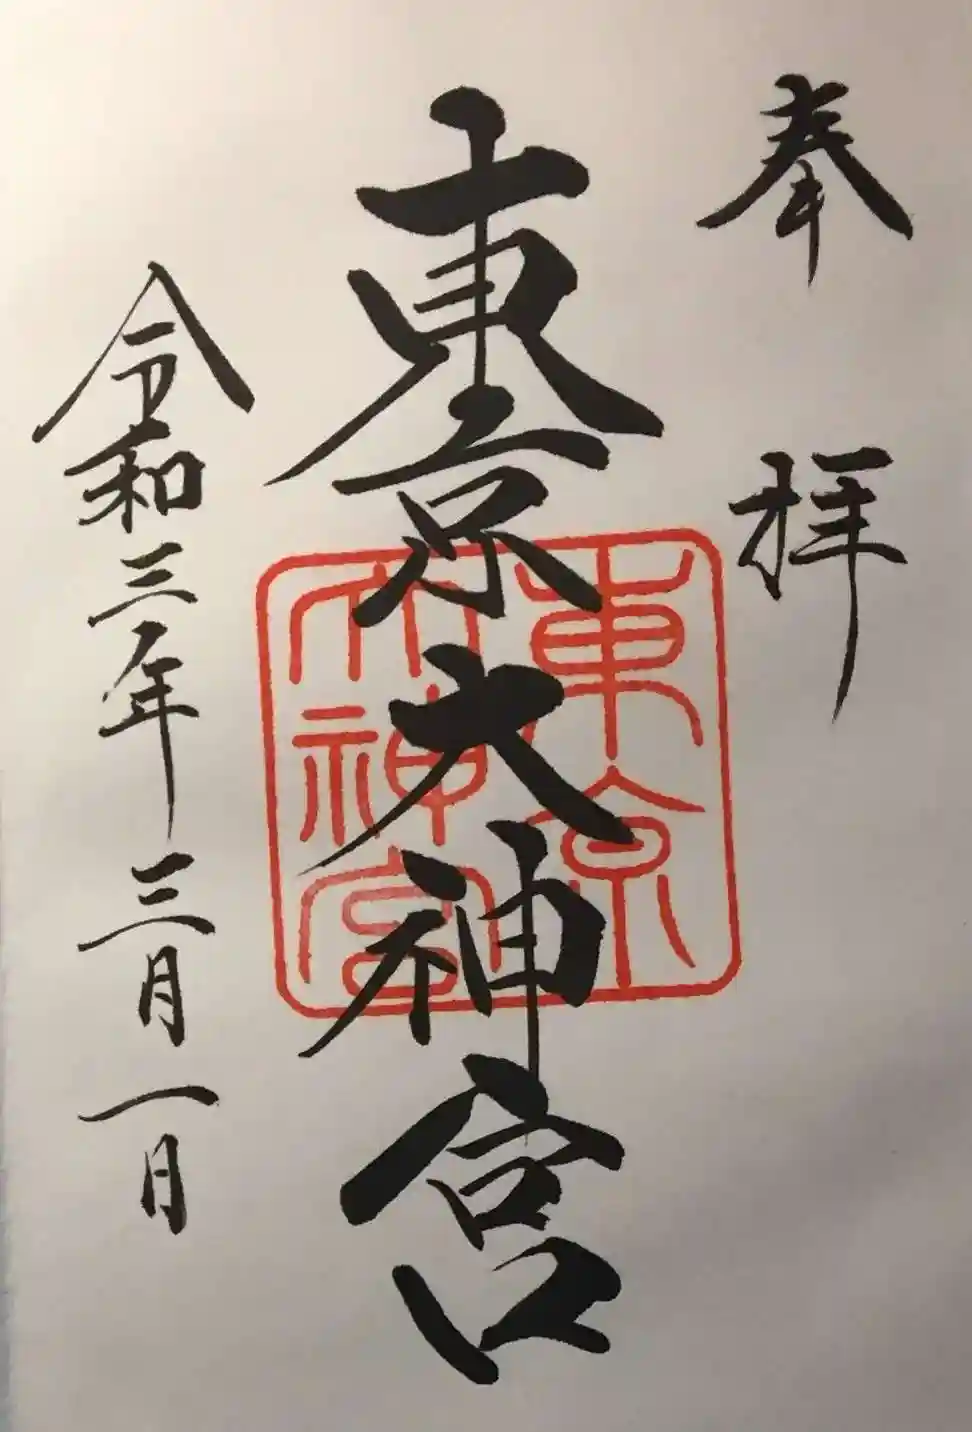 奉拝
東京大神宮
東京大神宮
令和三年三月一日